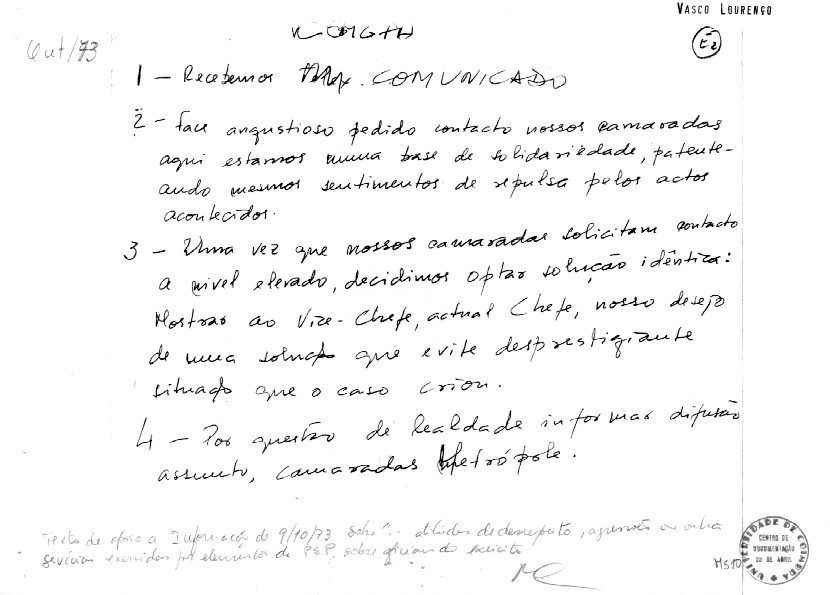 VASCO LOURENÇO
E2
Out/73
1 - Recebemos COMUNICADO
2 - face angustioso pedido contacto nossos camaradas
aqui estamos numa base de solidariedade, patente-
ando mesmos sentimentos de repulsa pelos actos
acontecidos.
3 - Uma vez que nossos camaradas solicitam contacto
a nivel elevado, decidimos optar solução idêntica:
Mostrar ao Vice-Chefe, actual Chefe, nosso desejo
de uma solução que evite desprestigiante
situação que o caso criou.
4 - Por questão de lealdade informar difusão
assunto, camaradas Metrópole.
Texto de apoio a Informação de 9/10/73 sobre ".. atitudes de desrespeito, agressões ou outras
sevicias exercidas por elementos da PSP sobre oficiais do exército
UNIVERSIDADE DE COIMBRA
CENTRO DE
DOCUMENTAÇÃO
25 DE ABRIL
MS10